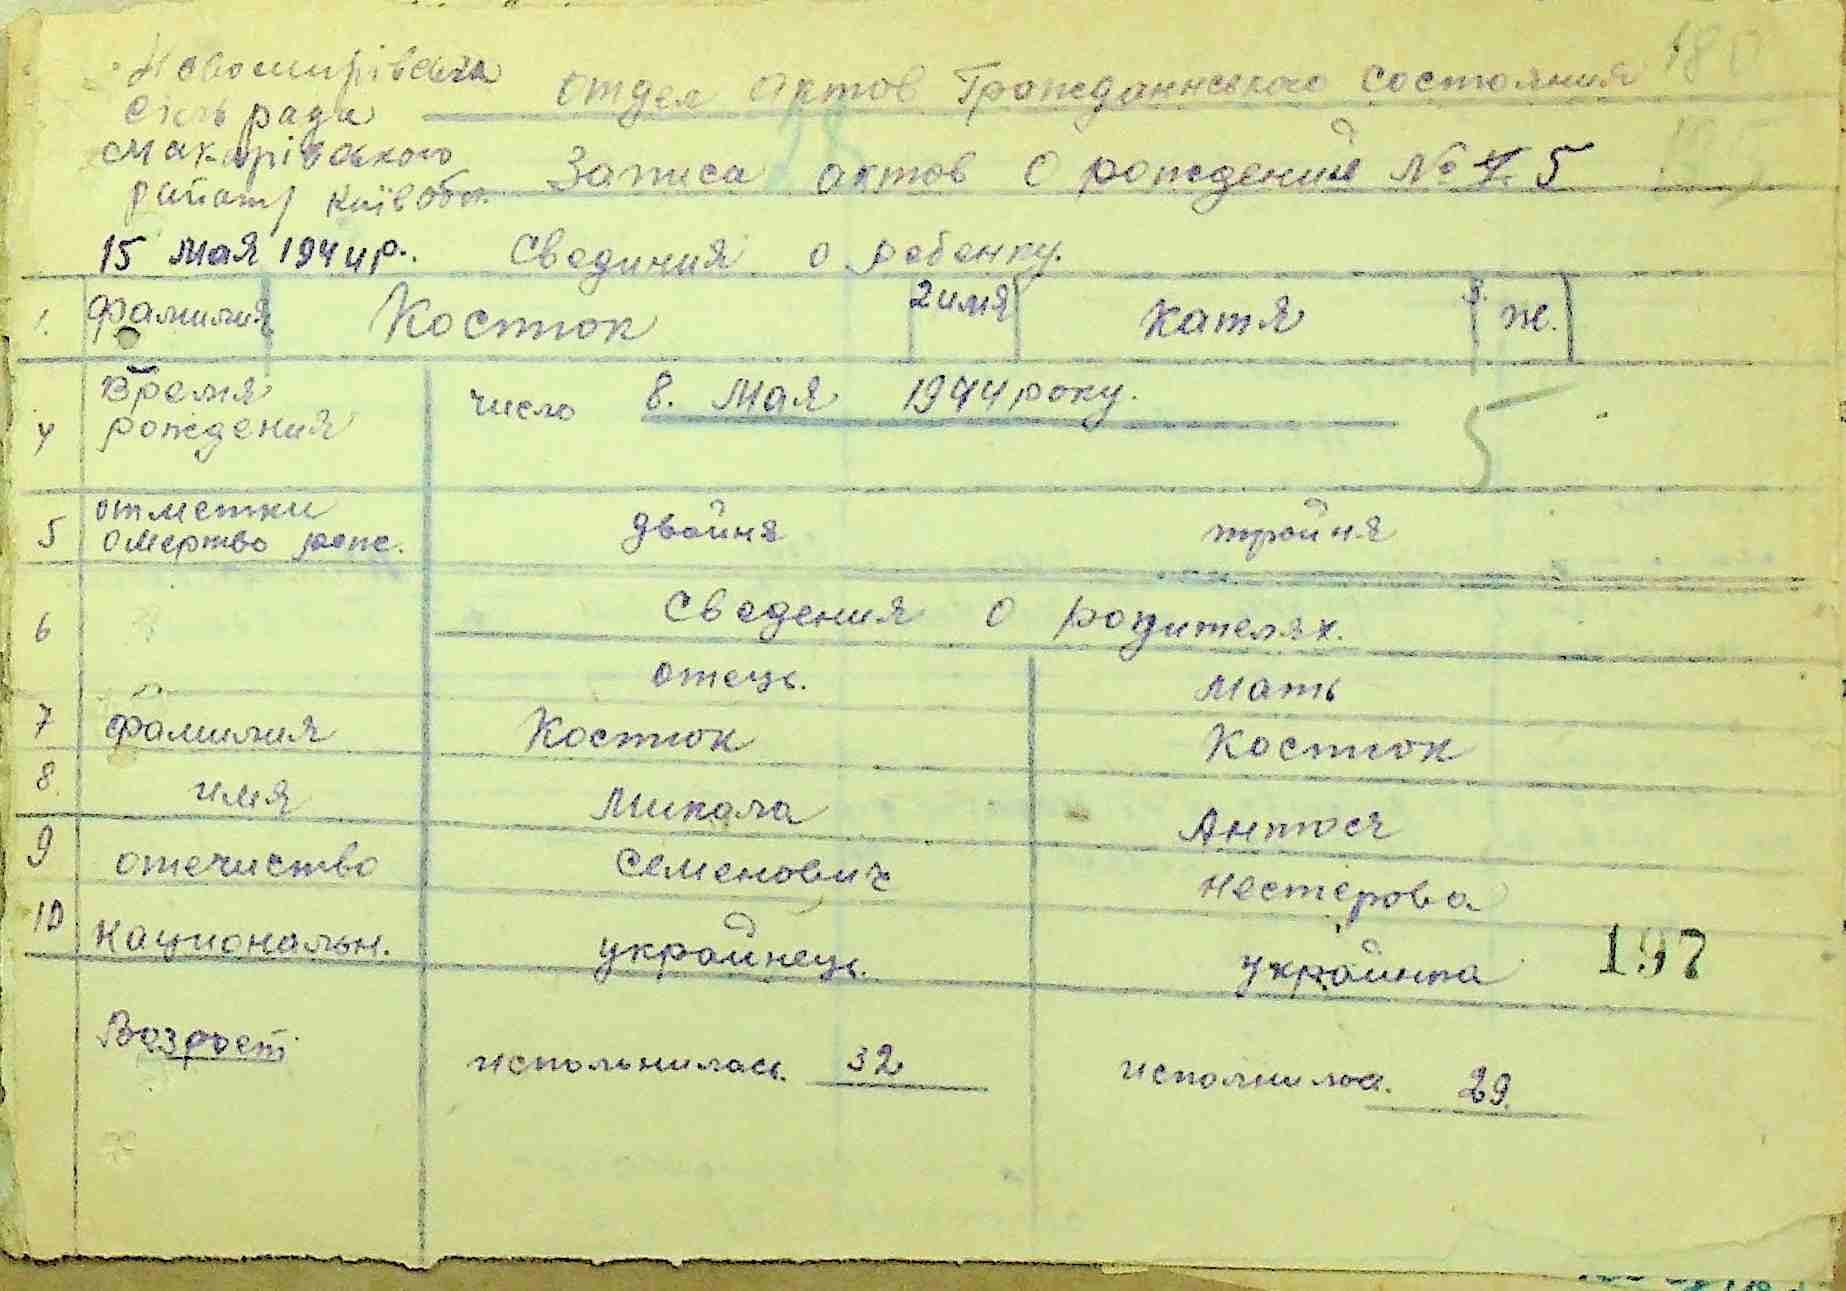 Новомирівська
сіль рада
Макарівського
району Київ обл.
отдел Актов Грожданнського состояния
Записа актов О рождении № 5
15 Мая 1944 р. Свединия о ребенку.
1. фамилия Костюк 2 имя Катя 3. ж.
4 Время рождения число 8. Мая 1944 року.
5
5 отметки двойня тройня
о мертво рожс.
6 Сведения О родителях.
отець. Мать
7 фамилия Костюк Костюк
8. имя Микола Антося
9 отечиство Семенович Нестерова
10 национальн. украйнець. украйнка
197
Возрост исполнилась. 32 исполнилса. 29.